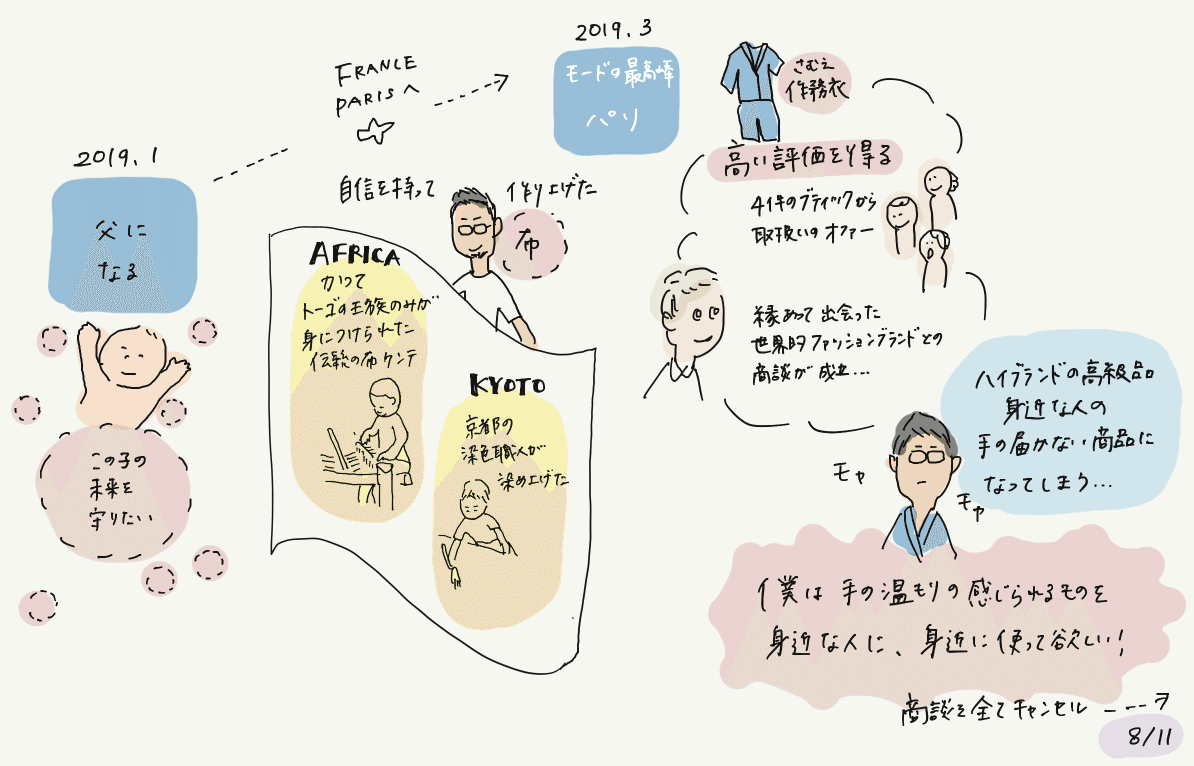 2019.1
父に
なる
この子の
未来を
守りたい
FRANCE
PARISへ
2019.3
モードの最高峰
パリ
自信を持って
作り上げた
布
AFRICA
かつて
トーゴの王族のみが
身につけられた
伝統の布ケンテ
KYOTO
京都の
染色職人が
染め上げた
さむえ
作務衣
高い評価を得る
41件のブティックから
取扱いのオファー
縁あって出会った
世界的ファッションブランドとの
商談が成立...
ハイブランドの高級品
身近な人の
手の届かない商品に
なってしまう...
モヤ
モヤ
僕は手の温もりの感じられるものを
身近な人に、身近に使って欲しい!
商談を全てキャンセル
8/11